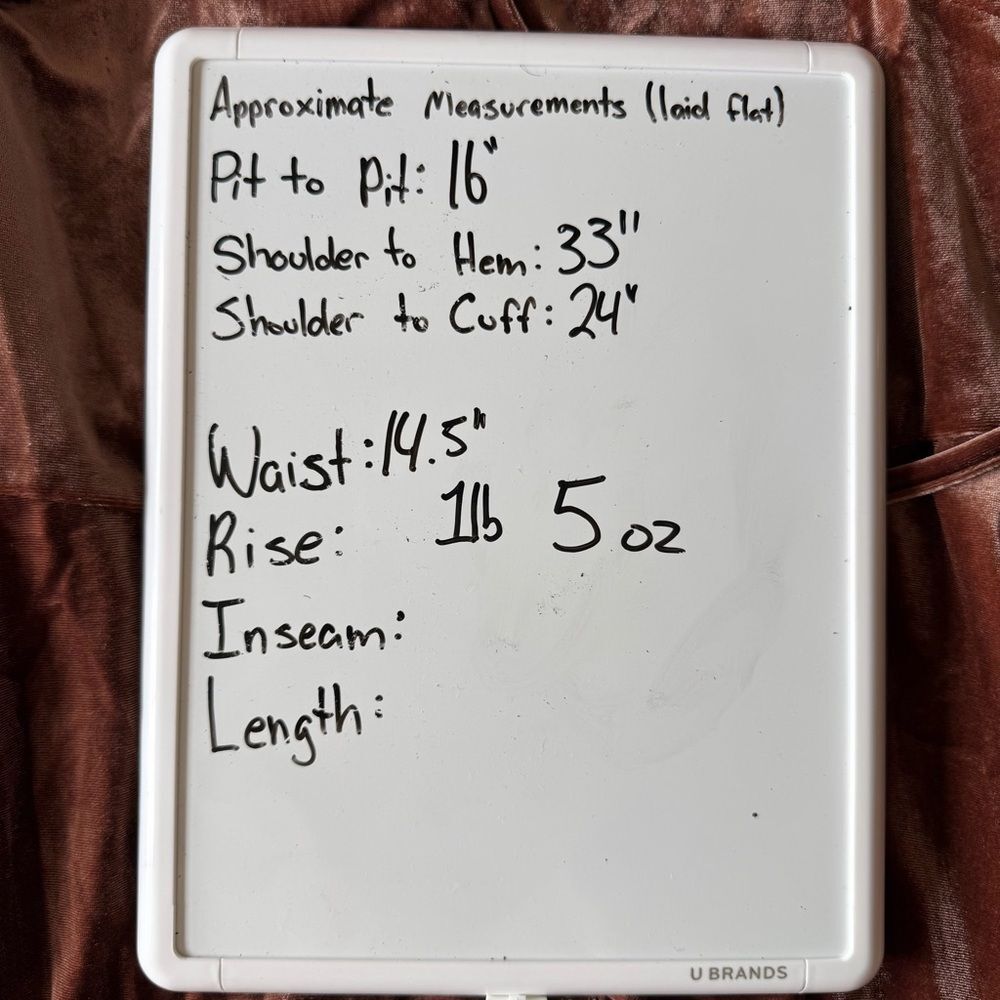 Approximate Measurements (laid flat)
Pit to Pit: 16"
Shoulder to Hem: 33"
Shoulder to Cuff: 24"
Waist: 14.5"
Rise: 1lb 5 oz
Inseam:
Length:
U BRANDS